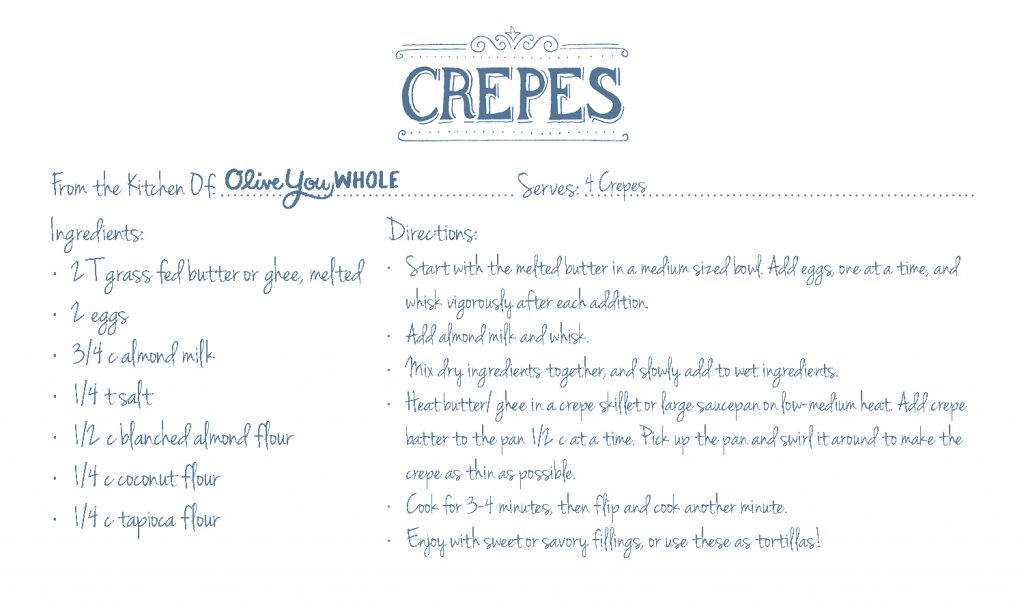 CREPES
From the Kitchen Of: Olive You, WHOLE Serves: 4 Crepes
Ingredients:
· 2 T grass fed butter or ghee, melted
· 2 eggs
· 3/4 c almond milk
· 1/4 t salt
· 1/2 c blanched almond flour
· 1/4 c coconut flour
· 1/4 c tapioca flour
Directions:
· Start with the melted butter in a medium sized bowl. Add eggs, one at a time, and
whisk vigorously after each addition.
· Add almond milk and whisk.
· Mix dry ingredients together, and slowly add to wet ingredients.
· Heat butter/ ghee in a crepe skillet or large saucepan on low-medium heat. Add crepe
batter to the pan 1/2 c at a time. Pick up the pan and swirl it around to make the
crepe as thin as possible.
· Cook for 3-4 minutes, then flip and cook another minute.
· Enjoy with sweet or savory fillings, or use these as tortillas!